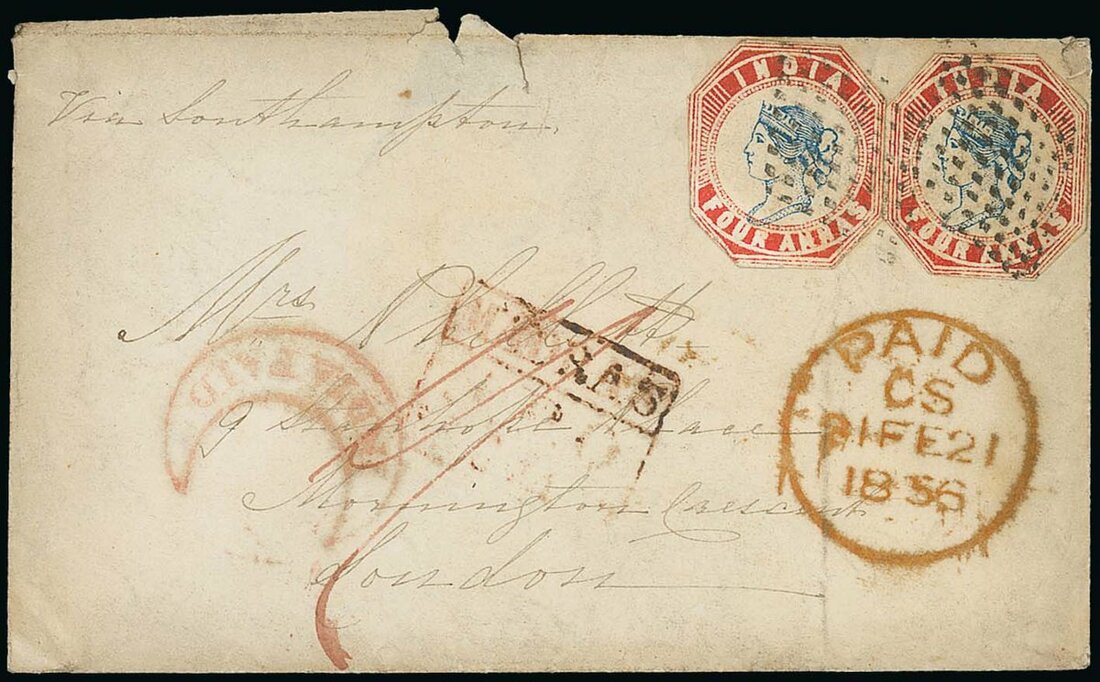 INDIA
FOUR ANNAS
INDIA
FOUR ANNAS
Via Southampton
Mrs
INDIA PAID
MADRAS
PAID
CS
21FE21
1856
9 Stanhope Place
Mornington Crescent
London